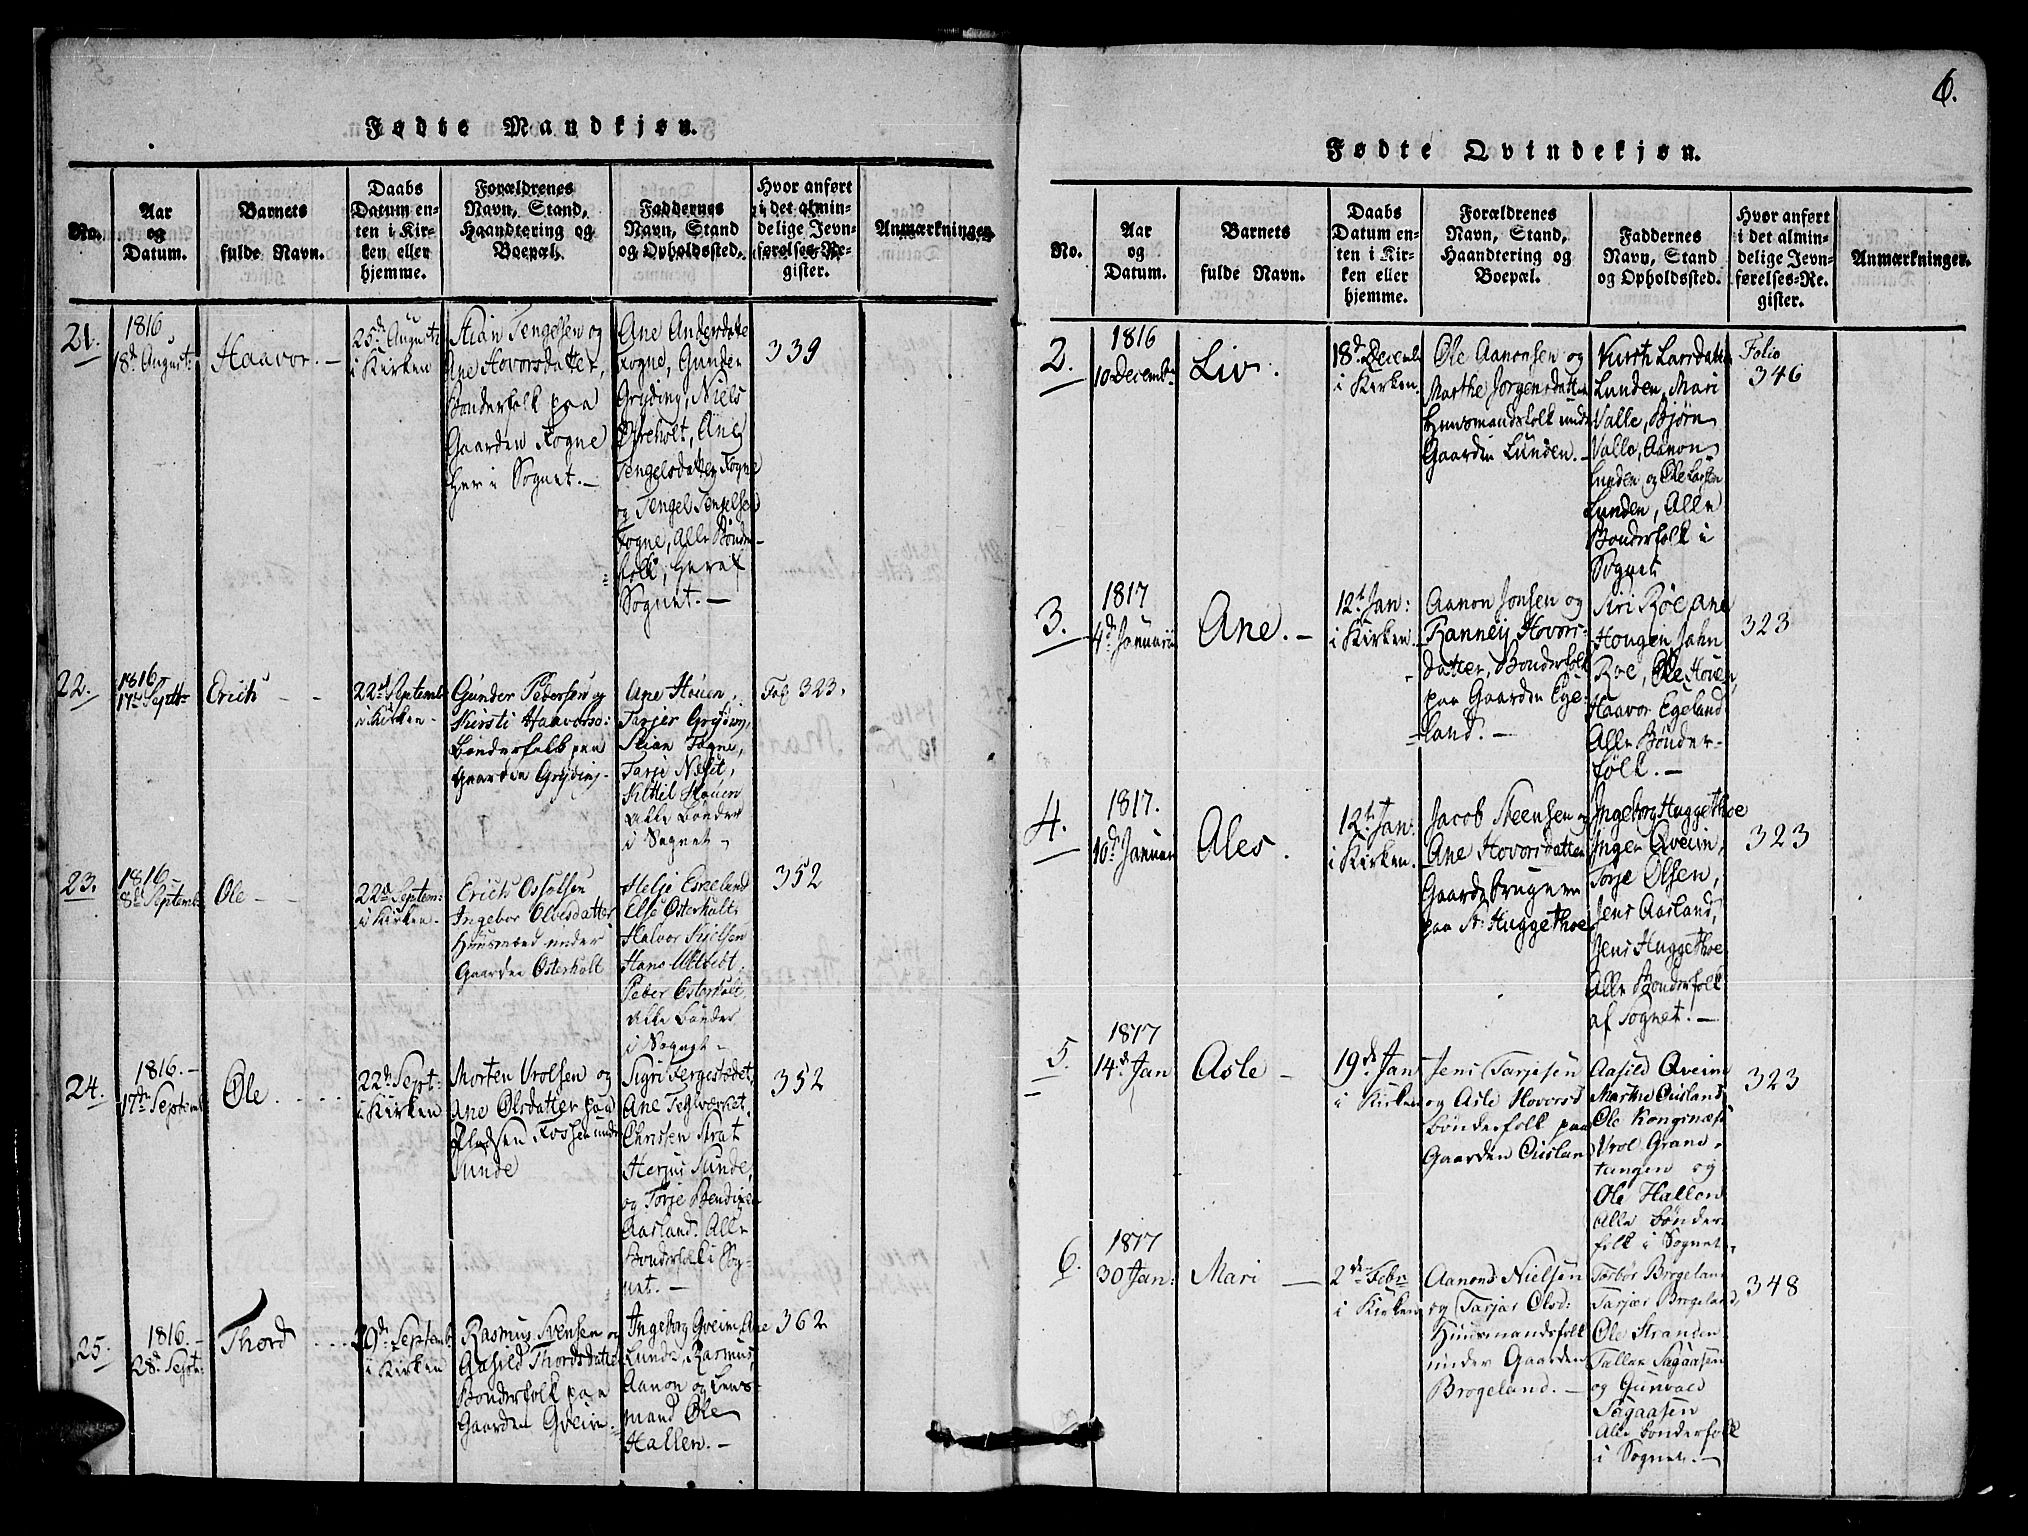 6.
Fødte Mandkjøn.
No.
Aar
og
Datum.
Barnets
fulde Navn.
Daabs
Datum en-
ten i Kir-
ken eller
hjemme.
Forældrenes
Navn, Stand,
Haandtering og
Boepæl.
Faddernes
Navn, Stand
og Opholdssted.
Hvor anført
i det almin-
delige Jevn-
førelses-Re-
gister.
Anmærkninger.
21.
1816
18d August.
Haavor. —
25d August
i Kirken
Stian Tengelsen og
Ane Hovorsdatter,
Bønderfolk paa
Gaarden Fogne
her i Sognet. —
Ane Andersdatter
Fogne, Gunder
Gryding, Niels
Østeholt, Ane
Tengelsdatter Fogne
og Tengel Tengelsen
Fogne, Alle Bønder-
folk, heraf
Sognet. —
339
22.
1816
17te Septbr
Erich
22d Septemb
i Kirken
Gunder Pedersen og
Kirsti Haavorsd:
Bønderfolk paa
Gaarden Gryding.
Ane Houen,
Tarjer Gryding,
Stian Fogne,
Tarje Næset,
Kittil Houen
Alle Bønder
i Sognet
Fol: 323.
23.
1816
8de Septemb
Ole
22de Septem:
i Kirken
Erich Osfølsen
Ingebor Olvesdatter
Huusmænd under
Gaarden Østerholt
Helje Eskeland
Else Østerholt
Halvor Kielsen
Hans
Peder Østerholt,
Alle Bønder
i Sognet
352
24.
1816. —
17te Septemb
Ole
22de Sept
i Kirken
Morten Vrolsen og
Ane Olsdatter paa
Pladsen Fossen under
Sunde
Sigri Fergestædet,
Ane Teglværket,
Christen Strat
Herjus Sunde,
og Torje Bendixen
Aasland. Alle
Bønderfolk i Sog-
net. —
352
25.
1816. —
28d Septr
Thord
29de Septemb
i Kirken
Rasmus Svensen og
Aasild Thordsdatter
Bønderfolk paa
Gaarden Qveim.
Ingeborg Qveim, Ane
Lunde, Rasmus
Aanon og Lens-
mand Ole
Hallen. —
362
Fødte Qvindekjøn.
No.
Aar
og
Datum.
Barnets
fulde Navn.
Daabs
Datum en-
ten i Kir-
ken eller
hjemme.
Forældrenes
Navn, Stand,
Haandtering og
Boepæl.
Faddernes
Navn, Stand
og Opholdssted.
Hvor anført
i det almin-
delige Jevn-
førelses-Re-
gister.
Anmærkninger.
2.
1816
10 Decembr
Liv.
18d Decemb
i Kirken.
Ole Aanonsen og
Marthe Jorgensdatter
Huusmandsfolk under
Gaarden Lunden. —
Kirsti Larsdatter
Lunden, Mari
Valle, Bjørn
Valle, Aanon
Lunden og Ole Larsen
Lunden, Alle
Bønderfolk i
Sognet
Folio
346
3.
1817
4d Januarii
Ane. —
12t Jan:
i Kirken.
Aanon Jonsen og
Ranneij Hovors-
datter, Bønderfolk
paa Gaarden Ege-
land. —
Siri Røe, Ane
Hougen, Jahn
Røe, Ole Houen,
Haavor Egeland
Alle Bønder-
folk. —
323
4.
1817.
10d Januar
Ales.
12t Jan:
i Kirken.
Jacob Steensen og
Ane Hovorsdatter
Gaardbrugerne
paa St: Huggethoe
Ingeborg Huggethoe
Inger Qveim,
Torje Olsen,
Jens Aasland,
Jens Huggethoe
Alle Bønderfolk
af Sognet. —
323
5.
1817
14de Jan
Asle —
19de Jan
i Kirken
Jens Tarjesen
og Asle Hovorsd
Bønderfolk paa
Gaarden Øislan
Aasild Qveim
Marthe Øisland
Ole Kongsnæs
Vrol Gran-
tangen og
Ole Hallen
Alle Bønder-
folk i Sognet.
323
6.
1817
30 Jan:
Mari —
2de Febr
i Kirken
Aanond Nielsen
og Tarjær Olsd:
Huusmandsfolk
under Gaarden
Brogeland. —
Torbør Brogeland
Tarjær Brogeland,
Ole Stranden
Tallen Sagaasen
og Gunvald
Sagaasen
Alle Bønderfolk
i Sognet. —
348